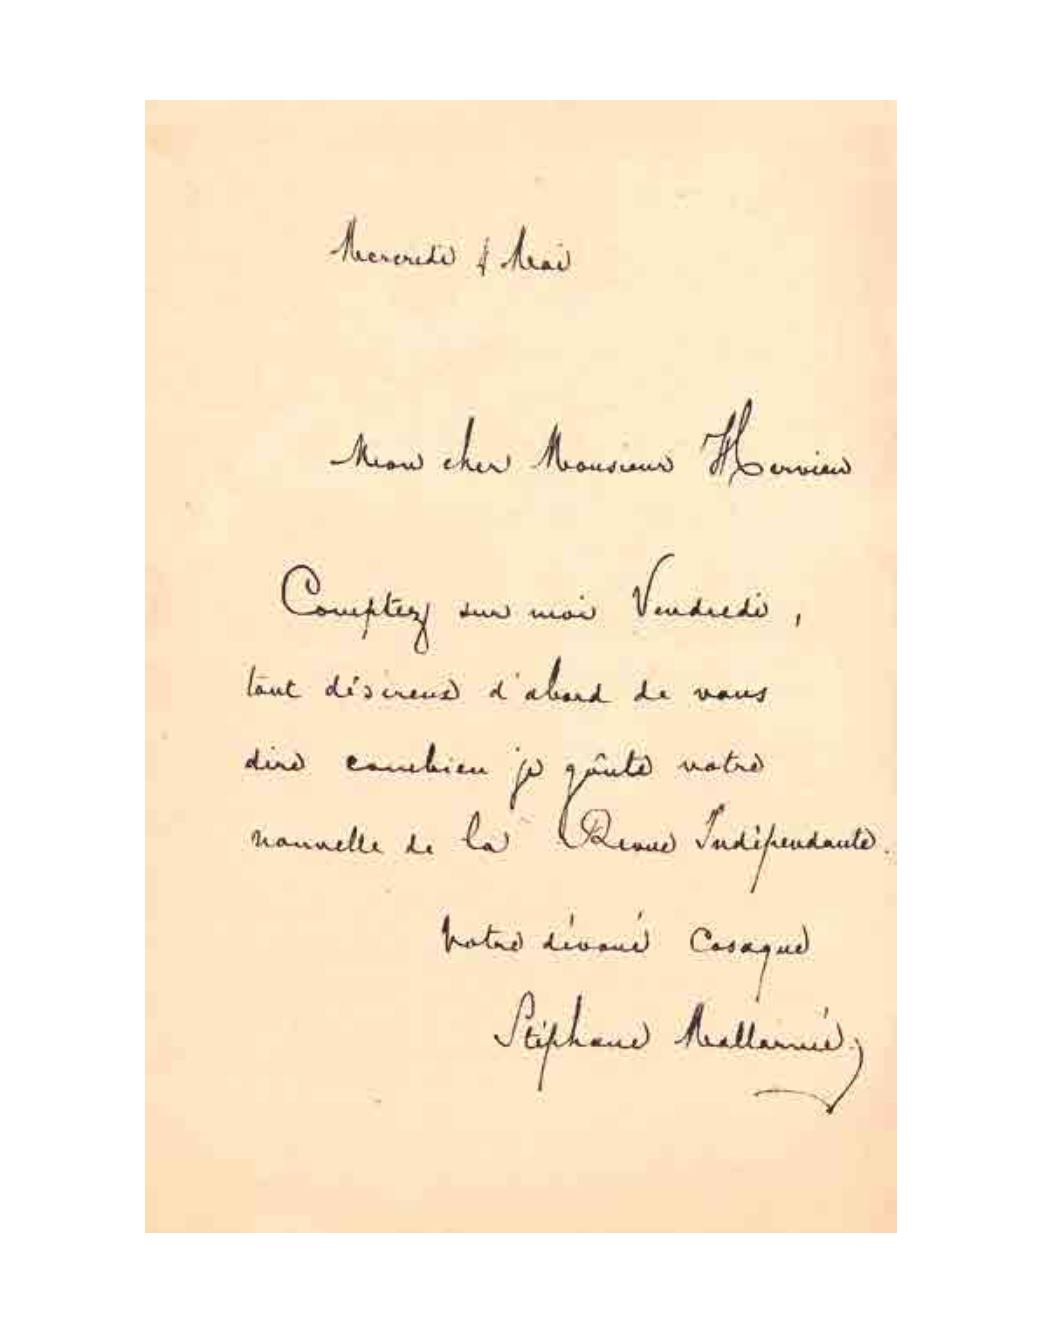 Mercredi 4 Mai
Mon cher Monsieur Hervieu
Comptez sur moi Vendredi,
tout désireux d'abord de vous
dire combien je goûte votre
nouvelle de la Revue Indépendante.
Votre dévoué Cosaque
Stéphane Mallarmé